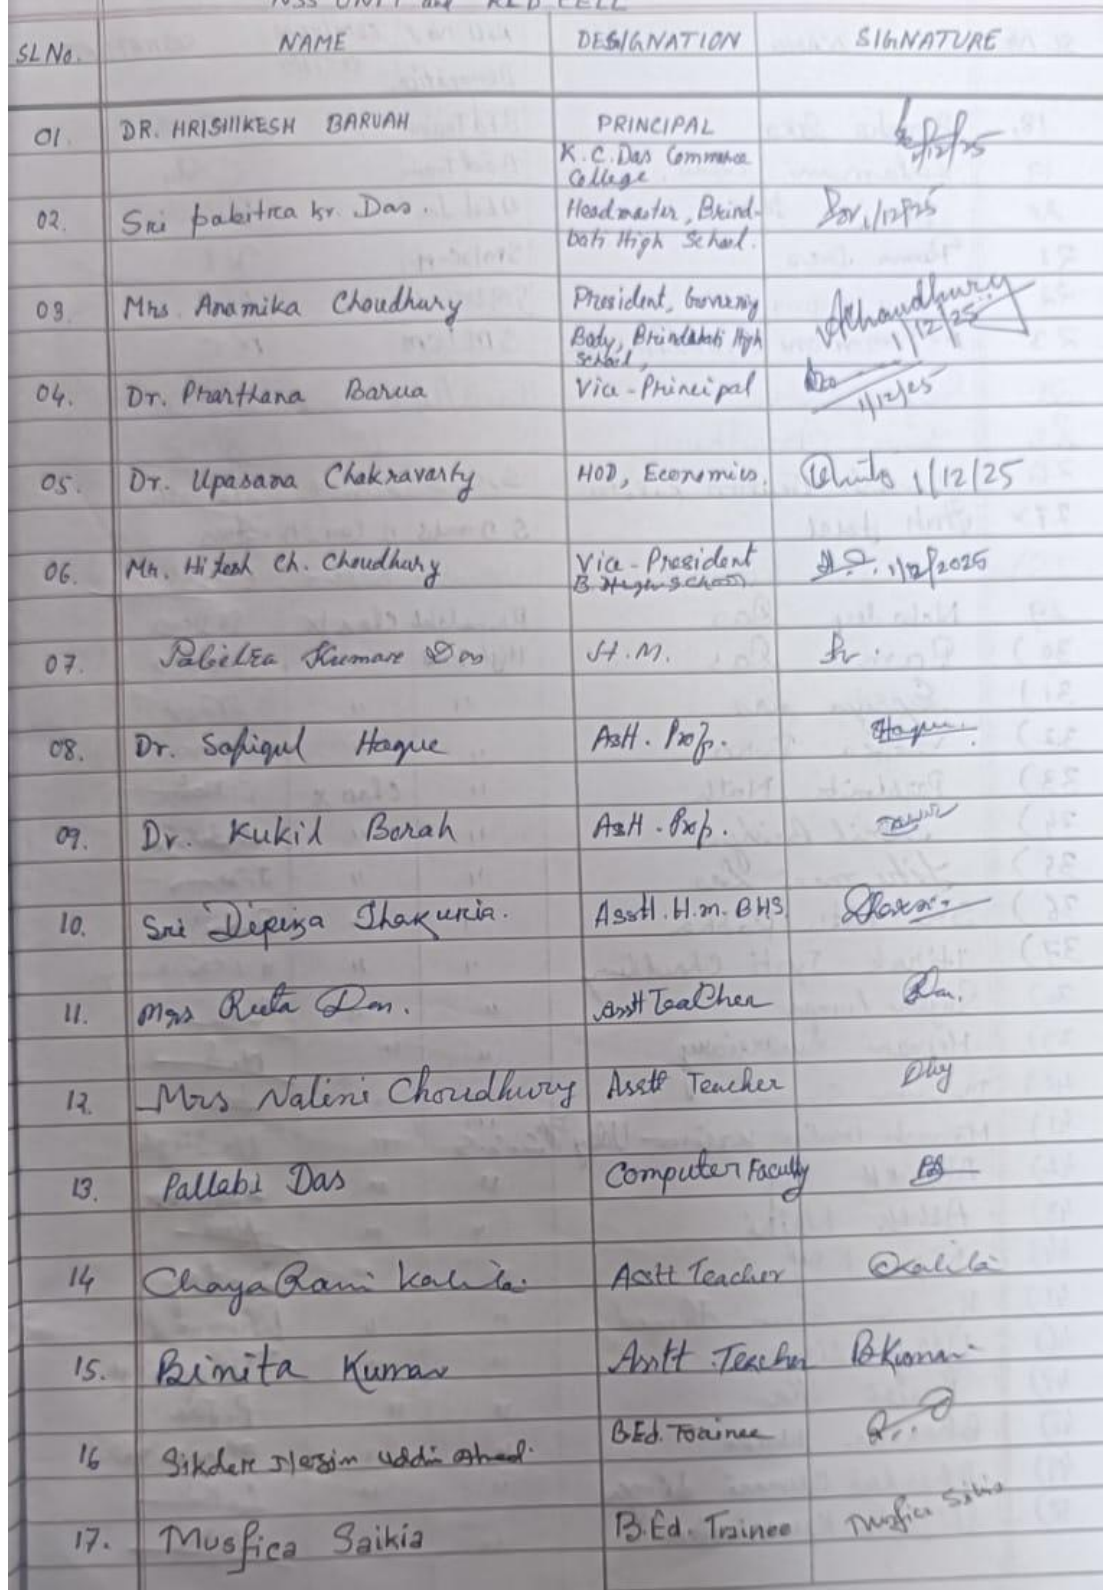 NSS UNIT and RED CELL
SL No. NAME DESIGNATION SIGNATURE
01. DR. HRISHIKESH BARUAH PRINCIPAL 1/12/25
K. C. Das Commerce
College
02. Sri Pabitra kr. Das. Headmaster, Brind- 1/12/25
bati High School.
03. Mrs Anamika Choudhury President, Governing AChoudhury
Body, Brindabati High 1/12/25
School,
04. Dr. Prarthana Barua Vice-Principal 1/12/25
05. Dr. Upasana Chakravarty HOD, Economics. 1/12/25
06. Mr. Hitesh Ch. Choudhury Vice-President 1/12/2025
B. High School
07. Pabitra Kumar Das H.M.
08. Dr. Safiqul Haque Asst. Prof. Haque
09. Dr. Kukil Borah Asst. Prof.
10. Sri Dipiza Thakuria. Asstt. H.m. BHS
11. Mrs Reeta Das. Asstt Teacher Das.
12. Mrs Nalini Choudhury Asstt Teacher
13. Pallabi Das Computer Faculty
14 Chaya Rani Kalita. Asstt Teacher Kalita
15. Binita Kumar Asstt Teacher BKumar
16 Sikder uddin B.Ed. Trainee
17. Musfica Saikia B.Ed. Trainee Musfica Saikia